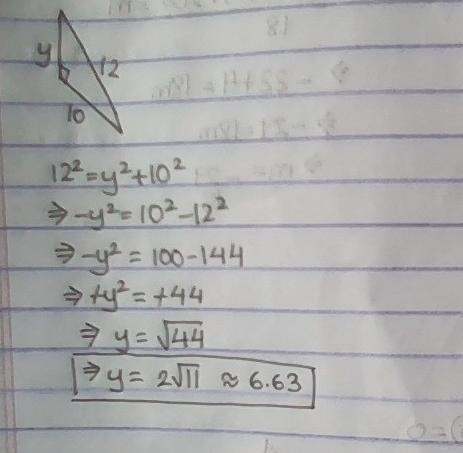 y
12
10
12²=y²+10²
⇒ -y²=10²-12²
⇒ -y² = 100-144
⇒ +y² = +44
⇒ y = √44
⇒ y = 2√11 ≈ 6.63